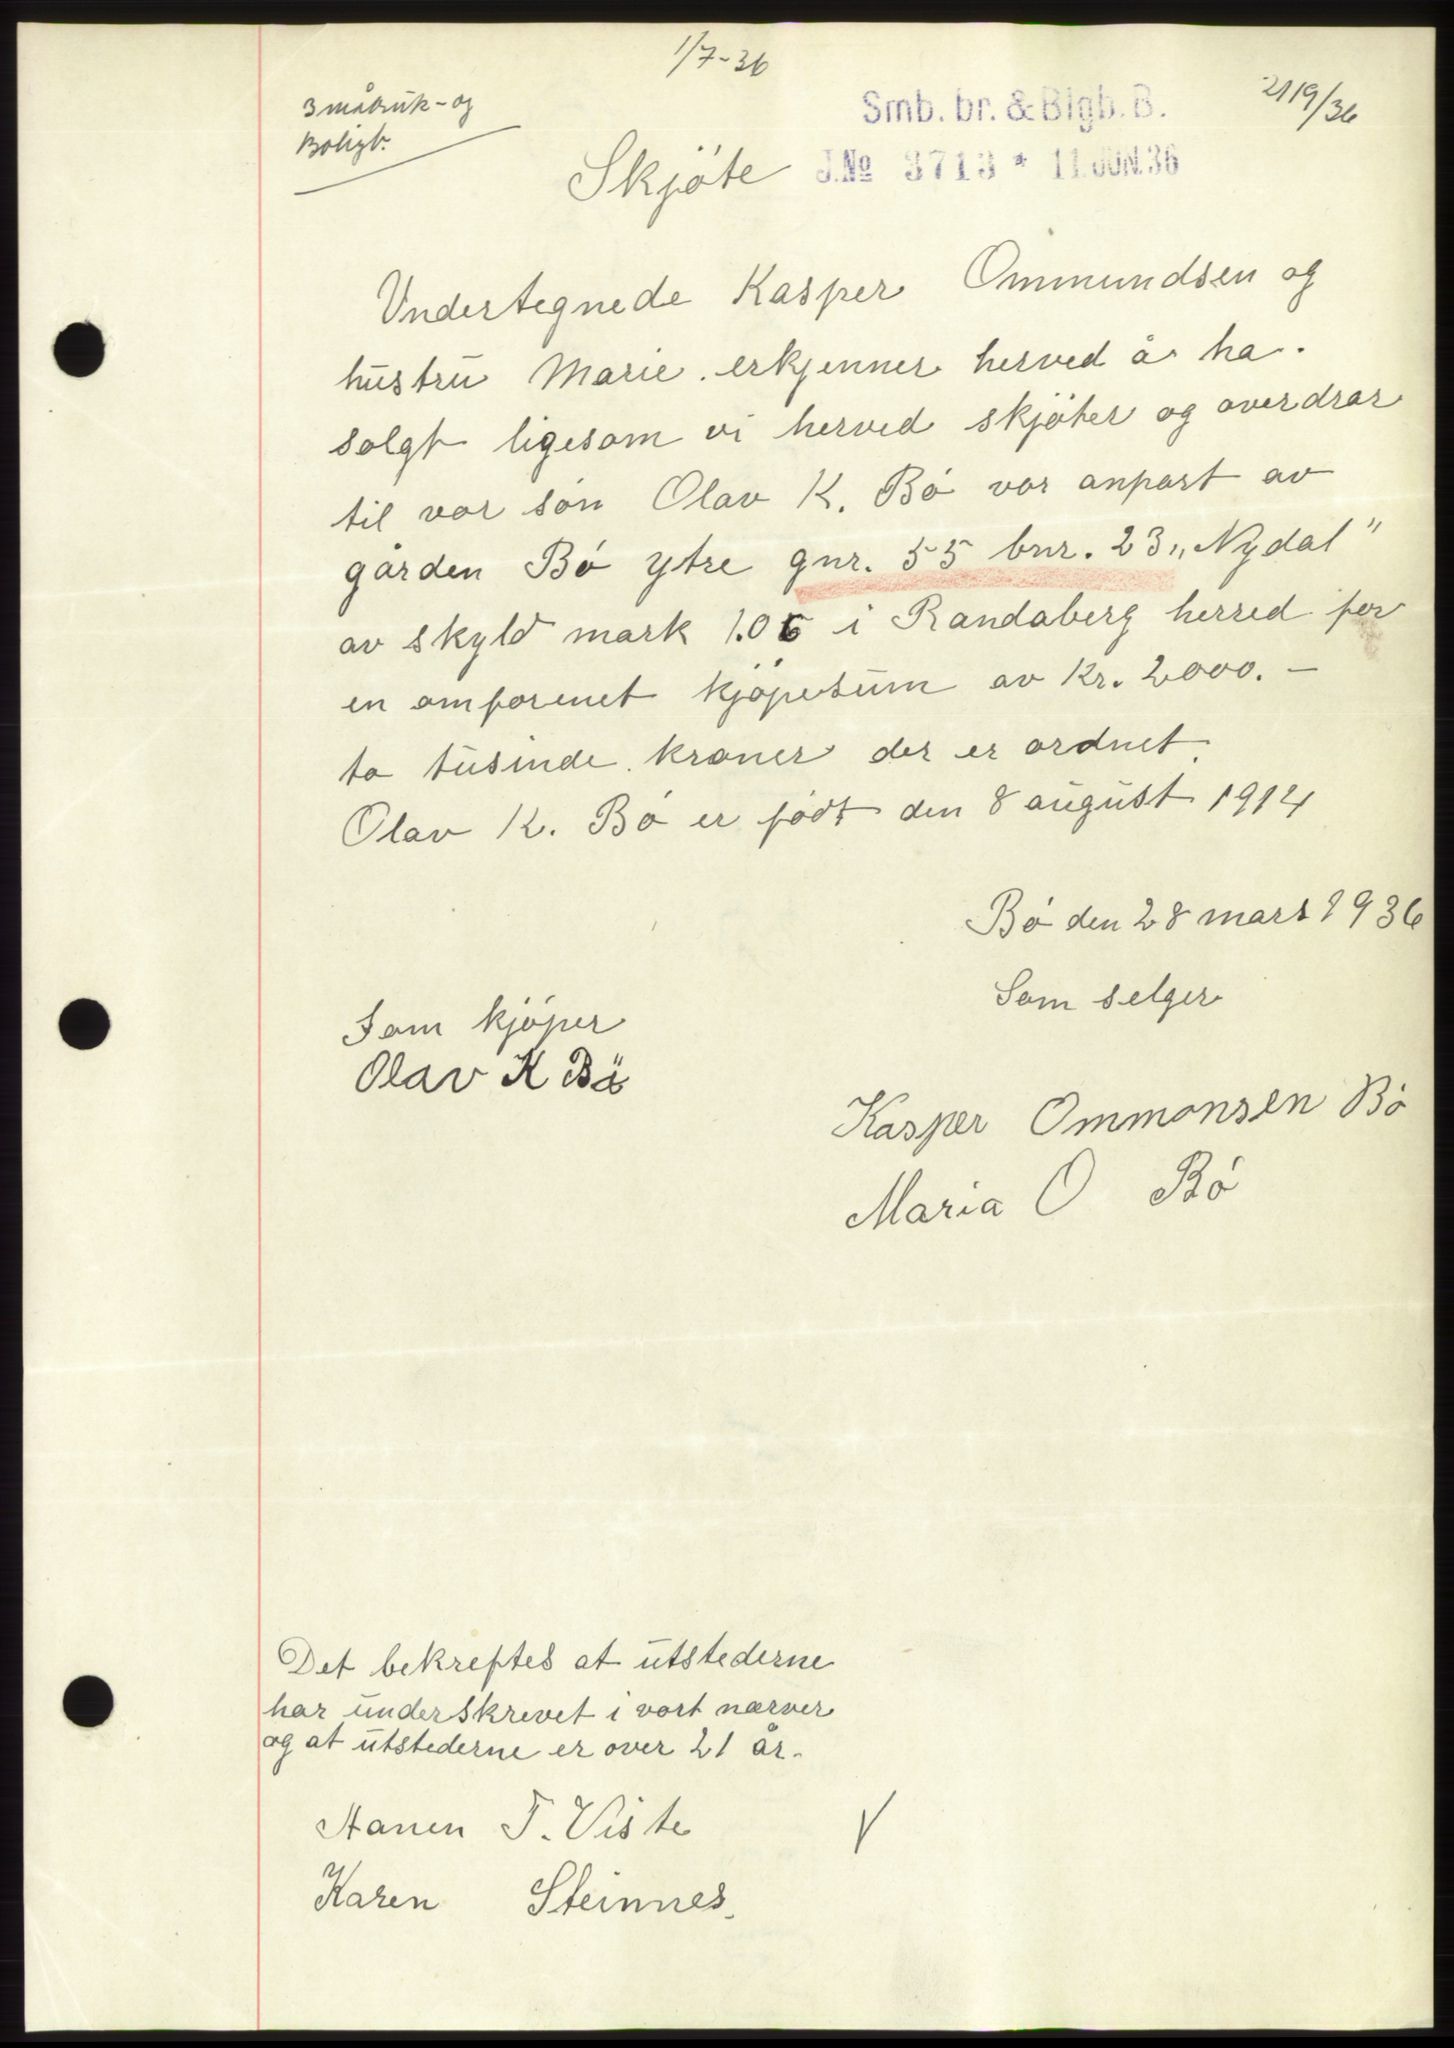 1/7-36
2119/36
Småbruk- og
Boligb.
Smb. br. & Blgb. B.
J.No 3713 * 11.JUN.36
Skjöte
Undertegnede Kasper Ommundsen og
hustru Marie erkjenner herved å ha
solgt ligesom vi herved skjöter og overdrar
til vor sön Olav K. Bö vor anpart av
gården Bö ytre gnr. 55 bnr. 23 „Nydal"
av skyld mark 1.06 i Randaberg herred for
en omforenet kjöpesum av Kr. 2000.-
to tusinde kroner der er ordnet.
Olav K. Bö er födt den 8 august 1914
Bö den 28 mars 1936
Som selger
Som kjöper
Olav K Bö
Kasper Ommonsen Bö
Maria O Bö
Det bekreftes at utstederne
har underskrevet i vort nærver
og at utstederne er over 21 år.
Aanen T. Viste
Karen Steinnes.